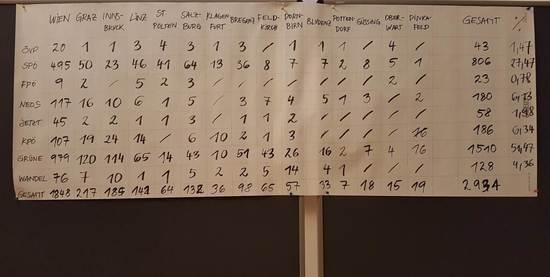 WIEN GRAZ INNS-BRUCK LINZ ST PÖLTEN SALZ-BURG KLAGENFURT BREGENZ FELD-KIRCH DORN-BIRN BLUDENZ POTTEN-DORF GÜSSING OBER-WART GESAMT %
ÖVP 20 1 1 3 4 3 1 3 / 1 1 1 / 4 / 43 1,47
SPÖ 495 50 23 46 41 64 13 36 8 7 7 2 8 5 1 806 27,47
FPÖ 9 2 / 5 2 3 / / / / / / / 2 / 23 0,78
NEOS 117 16 10 6 1 5 / 3 7 4 5 1 3 / 2 180 6,13
JETZT 45 2 2 1 1 3 / 1 1 2 / / / / / 58 1,98
KPÖ 107 19 24 14 / 6 10 2 1 3 / / / / 186 6,34
GRÜNE 979 120 114 65 14 43 10 51 43 26 16 2 7 4 16 1510 51,47
WANDEL 76 7 10 1 1 5 2 2 5 14 4 1 / / / 128 4,36
GESAMT 1848 217 185 142 64 132 36 98 65 57 33 7 18 15 19 2934